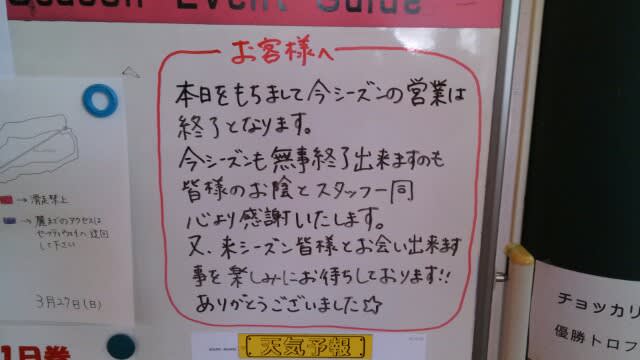 Season Event Guide
お客様へ
本日をもちまして今シーズンの営業は
終了となります。
今シーズンも無事終了出来ますのも
皆様のお陰とスタッフ一同
心より感謝いたします。
又、来シーズン皆様とお会い出来ます
事を楽しみにお待ちしております!!
ありがとうございました☆
→ 滑走禁止
→ 麓までのアクセスは
して下さい
3月27日(日)
1日券
天気予報
チョッカリ
優勝トロフ